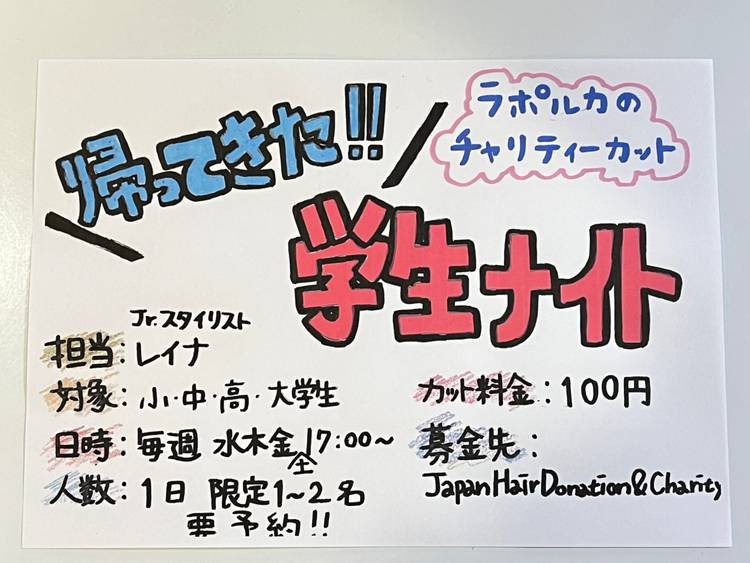 帰ってきた!!
ラポルカの
チャリティーカット
学生ナイト
Jr.スタイリスト
担当:レイナ
対象:小・中・高・大学生
日時:毎週 水木金土 17:00~
人数:1日 限定1~2名
要予約!!
カット料金:100円
募金先:
Japan Hair Donation & Charity